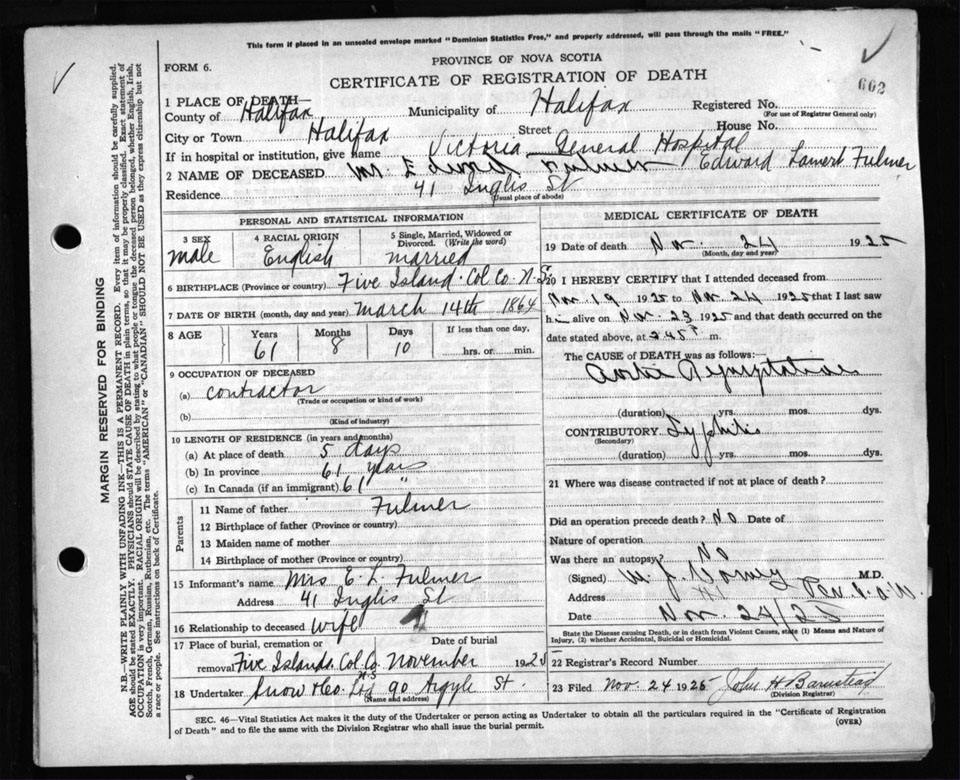 This form if placed in an unsealed envelope marked "Dominion Statistics Free," and properly addressed, will pass through the mails "FREE."
FORM 6.
PROVINCE OF NOVA SCOTIA
CERTIFICATE OF REGISTRATION OF DEATH
662
1 PLACE OF DEATH—
County of Halifax Municipality of Halifax Registered No.
(For use of Registrar General only)
City or Town Halifax Street House No.
If in hospital or institution, give name Victoria General Hospital
2 NAME OF DECEASED Mr. E Fulmer Edward Lamert Fulmer
Residence 41 Inglis St
(Usual place of abode)
PERSONAL AND STATISTICAL INFORMATION
3 SEX 4 RACIAL ORIGIN 5 Single, Married, Widowed or Divorced. (Write the word)
male English married
6 BIRTHPLACE (Province or country) Five Island Col Co N.S.
7 DATE OF BIRTH (month, day and year) March 14th 1864
8 AGE Years Months Days If less than one day,
61 8 10 hrs. or min.
9 OCCUPATION OF DECEASED
(a) contractor
(Trade or occupation or kind of work)
(b)
(Kind of industry)
10 LENGTH OF RESIDENCE (in years and months)
(a) At place of death 5 days
(b) In province 61 years
(c) In Canada (if an immigrant) 61 "
Parents
11 Name of father Fulmer
12 Birthplace of father (Province or country)
13 Maiden name of mother
14 Birthplace of mother (Province or country)
15 Informant's name Mrs E. L. Fulmer
Address 41 Inglis St
16 Relationship to deceased wife
17 Place of burial, cremation or Date of burial
removal Five Islands Col. Co. N.S. November 192
18 Undertaker Snow & Co. Ltd 90 Argyle St.
(Name and address)
MEDICAL CERTIFICATE OF DEATH
19 Date of death Nov. 24 1925
(Month, day and year)
20 I HEREBY CERTIFY that I attended deceased from
Nov. 19 1925 to Nov. 24 1925 that I last saw
h alive on Nov. 23 1925 and that death occurred on the
date stated above, at 245 m.
The CAUSE OF DEATH was as follows:
Aortic Regurgitation
(duration) yrs. mos. dys.
CONTRIBUTORY Syphilis
(Secondary)
(duration) yrs. mos. dys.
21 Where was disease contracted if not at place of death?
Did an operation precede death? No Date of
Nature of operation
Was there an autopsy? No
(Signed) M.D.
Address
Date Nov. 24/25
State the Disease causing Death, or in death from Violent Causes, state (1) Means and Nature of Injury, (2) whether Accidental, Suicidal or Homicidal.
22 Registrar's Record Number
23 Filed Nov. 24 1925 John H Barnstead
(Division Registrar)
SEC. 46—Vital Statistics Act makes it the duty of the Undertaker or person acting as Undertaker to obtain all the particulars required in the "Certificate of Registration
of Death" and to file the same with the Division Registrar who shall issue the burial permit. (OVER)
MARGIN RESERVED FOR BINDING
N.B.—WRITE PLAINLY WITH UNFADING INK—THIS IS A PERMANENT RECORD. Every item of information should be carefully supplied.
AGE should be stated EXACTLY. PHYSICIANS should STATE CAUSE OF DEATH in plain terms, so that it may be properly classified. Exact statement of
OCCUPATION is very important. RACIAL ORIGIN will be described by stating to what people or tongue the deceased person belonged, whether English, Irish,
Scotch, French, German, Russian, Ruthenian, etc. The terms "AMERICAN" or "CANADIAN" SHOULD NOT BE USED as they express citizenship but not
a race or people. See instructions on back of Certificate.